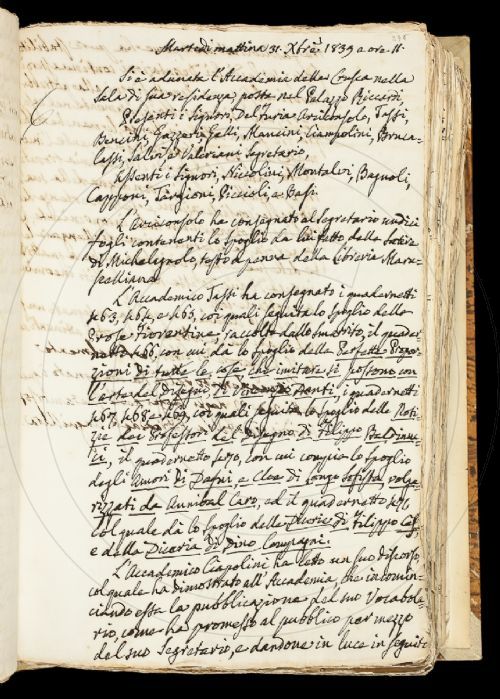 Martedì mattina 31. Xbre 1839 a ore 11.
Si è adunata l'Accademia della Crusca nella
Sala di sua residenza posta nel Palazzo Riccardi,
Presenti i Signori, Del Furia Arciconsolo, Tassi,
Bencini, Gazzeri, Gelli, Mancini, Ciampolini, Bruca-
lassi, Salvi, e Valeriani Segretario,
Assenti i Signori, Niccolini, Montalvi, Bagnoli,
Capponi, Targioni, Piccioli, e Basi.
L'Arciconsolo ha consegnato al Segretario undici
fogli contenenti lo spoglio da lui fatto delle Satire
di Michelagnolo, testo a penna della Libreria Maru-
celliana.
L'Accademico Tassi ha consegnati i quadernetti
463, 464, e 465, coi quali seguita lo spoglio delle
Prose Fiorentine, raccolte dallo smarrito, il quader-
netto 466, con cui dà lo spoglio della Perfetta Propor-
zioni di tutte le cose che imitare si possono con
l'arte del Disegno di Vincenzo Danti, i quadernetti
467, 468 e 469, coi quali seguita lo spoglio delle Noti-
zie dei Professori del Disegno di Filippo Baldinuc-
ci, il quadernetto 470, con cui compie lo spoglio
degli Amori di Dafni e Cloe di Longo Sofista volga-
rizzati da Annibal Caro, ed il quadernetto 471
col quale dà lo spoglio delle di Filippo
e della Diceria di Dino Compagni.
L'Accademico Ciapolini ha letto un suo Discorso,
col quale ha dimostrato all'Accademia, che incomin-
ciando essa la pubblicazione del suo Vocabola-
rio, come ha promesso al pubblico per mezzo
del suo Segretario, e dandone in luce in seguito